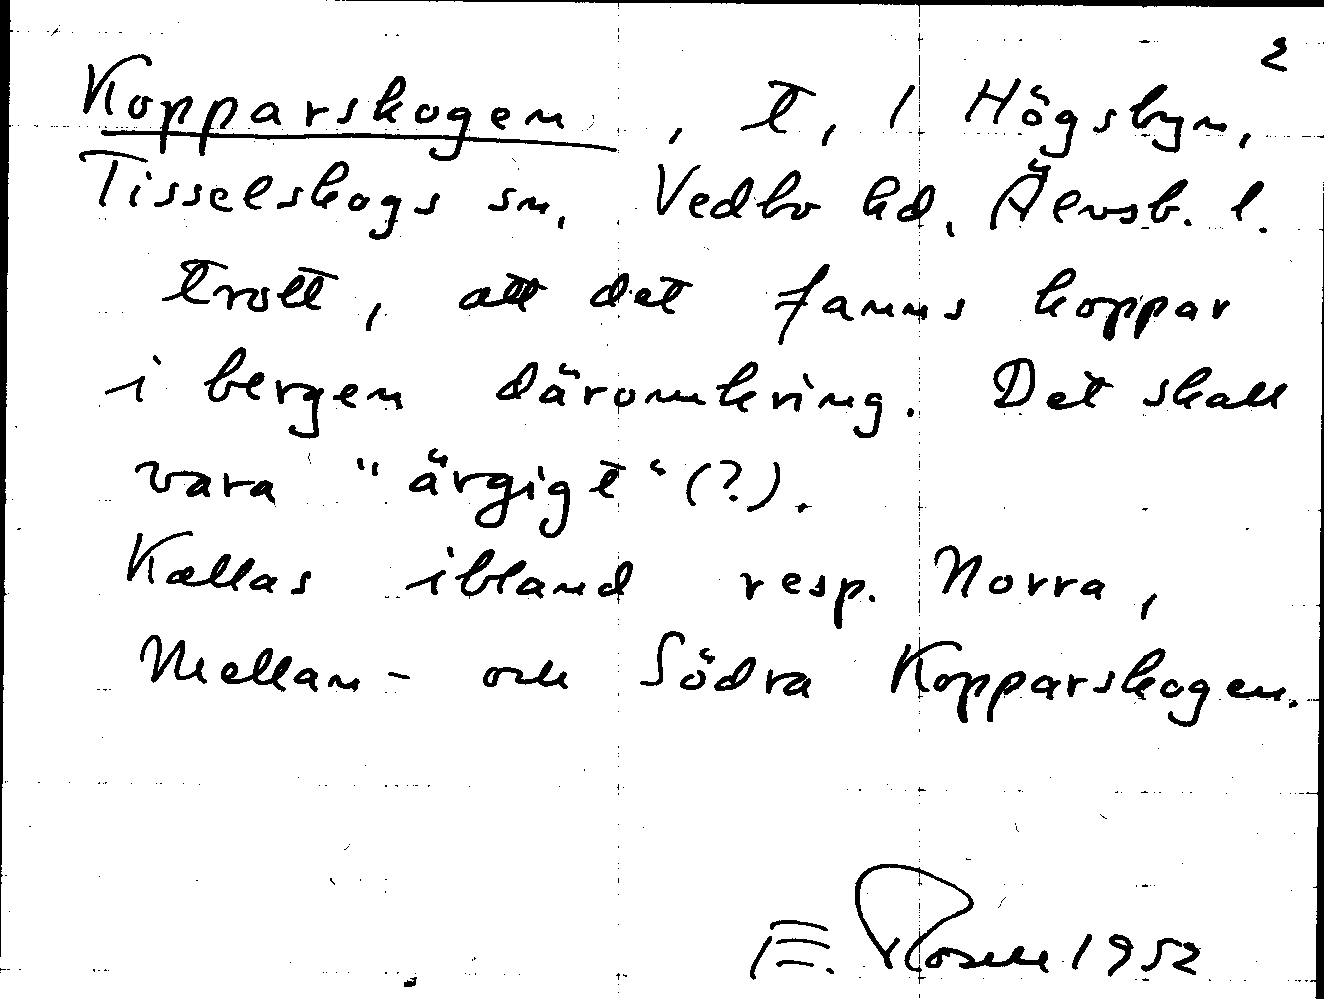 2
Kopparskogen, t, 1 Högsbyn,
Tisselskogs sn, Vedbo hd, Älvsb. l.
trott, att det fanns koppar
i bergen däromkring. Det skall
vara "ärgigt" (?).
Kallas ibland resp. Norra,
Mellan- och Södra Kopparskogen.
E. Rosell 1952